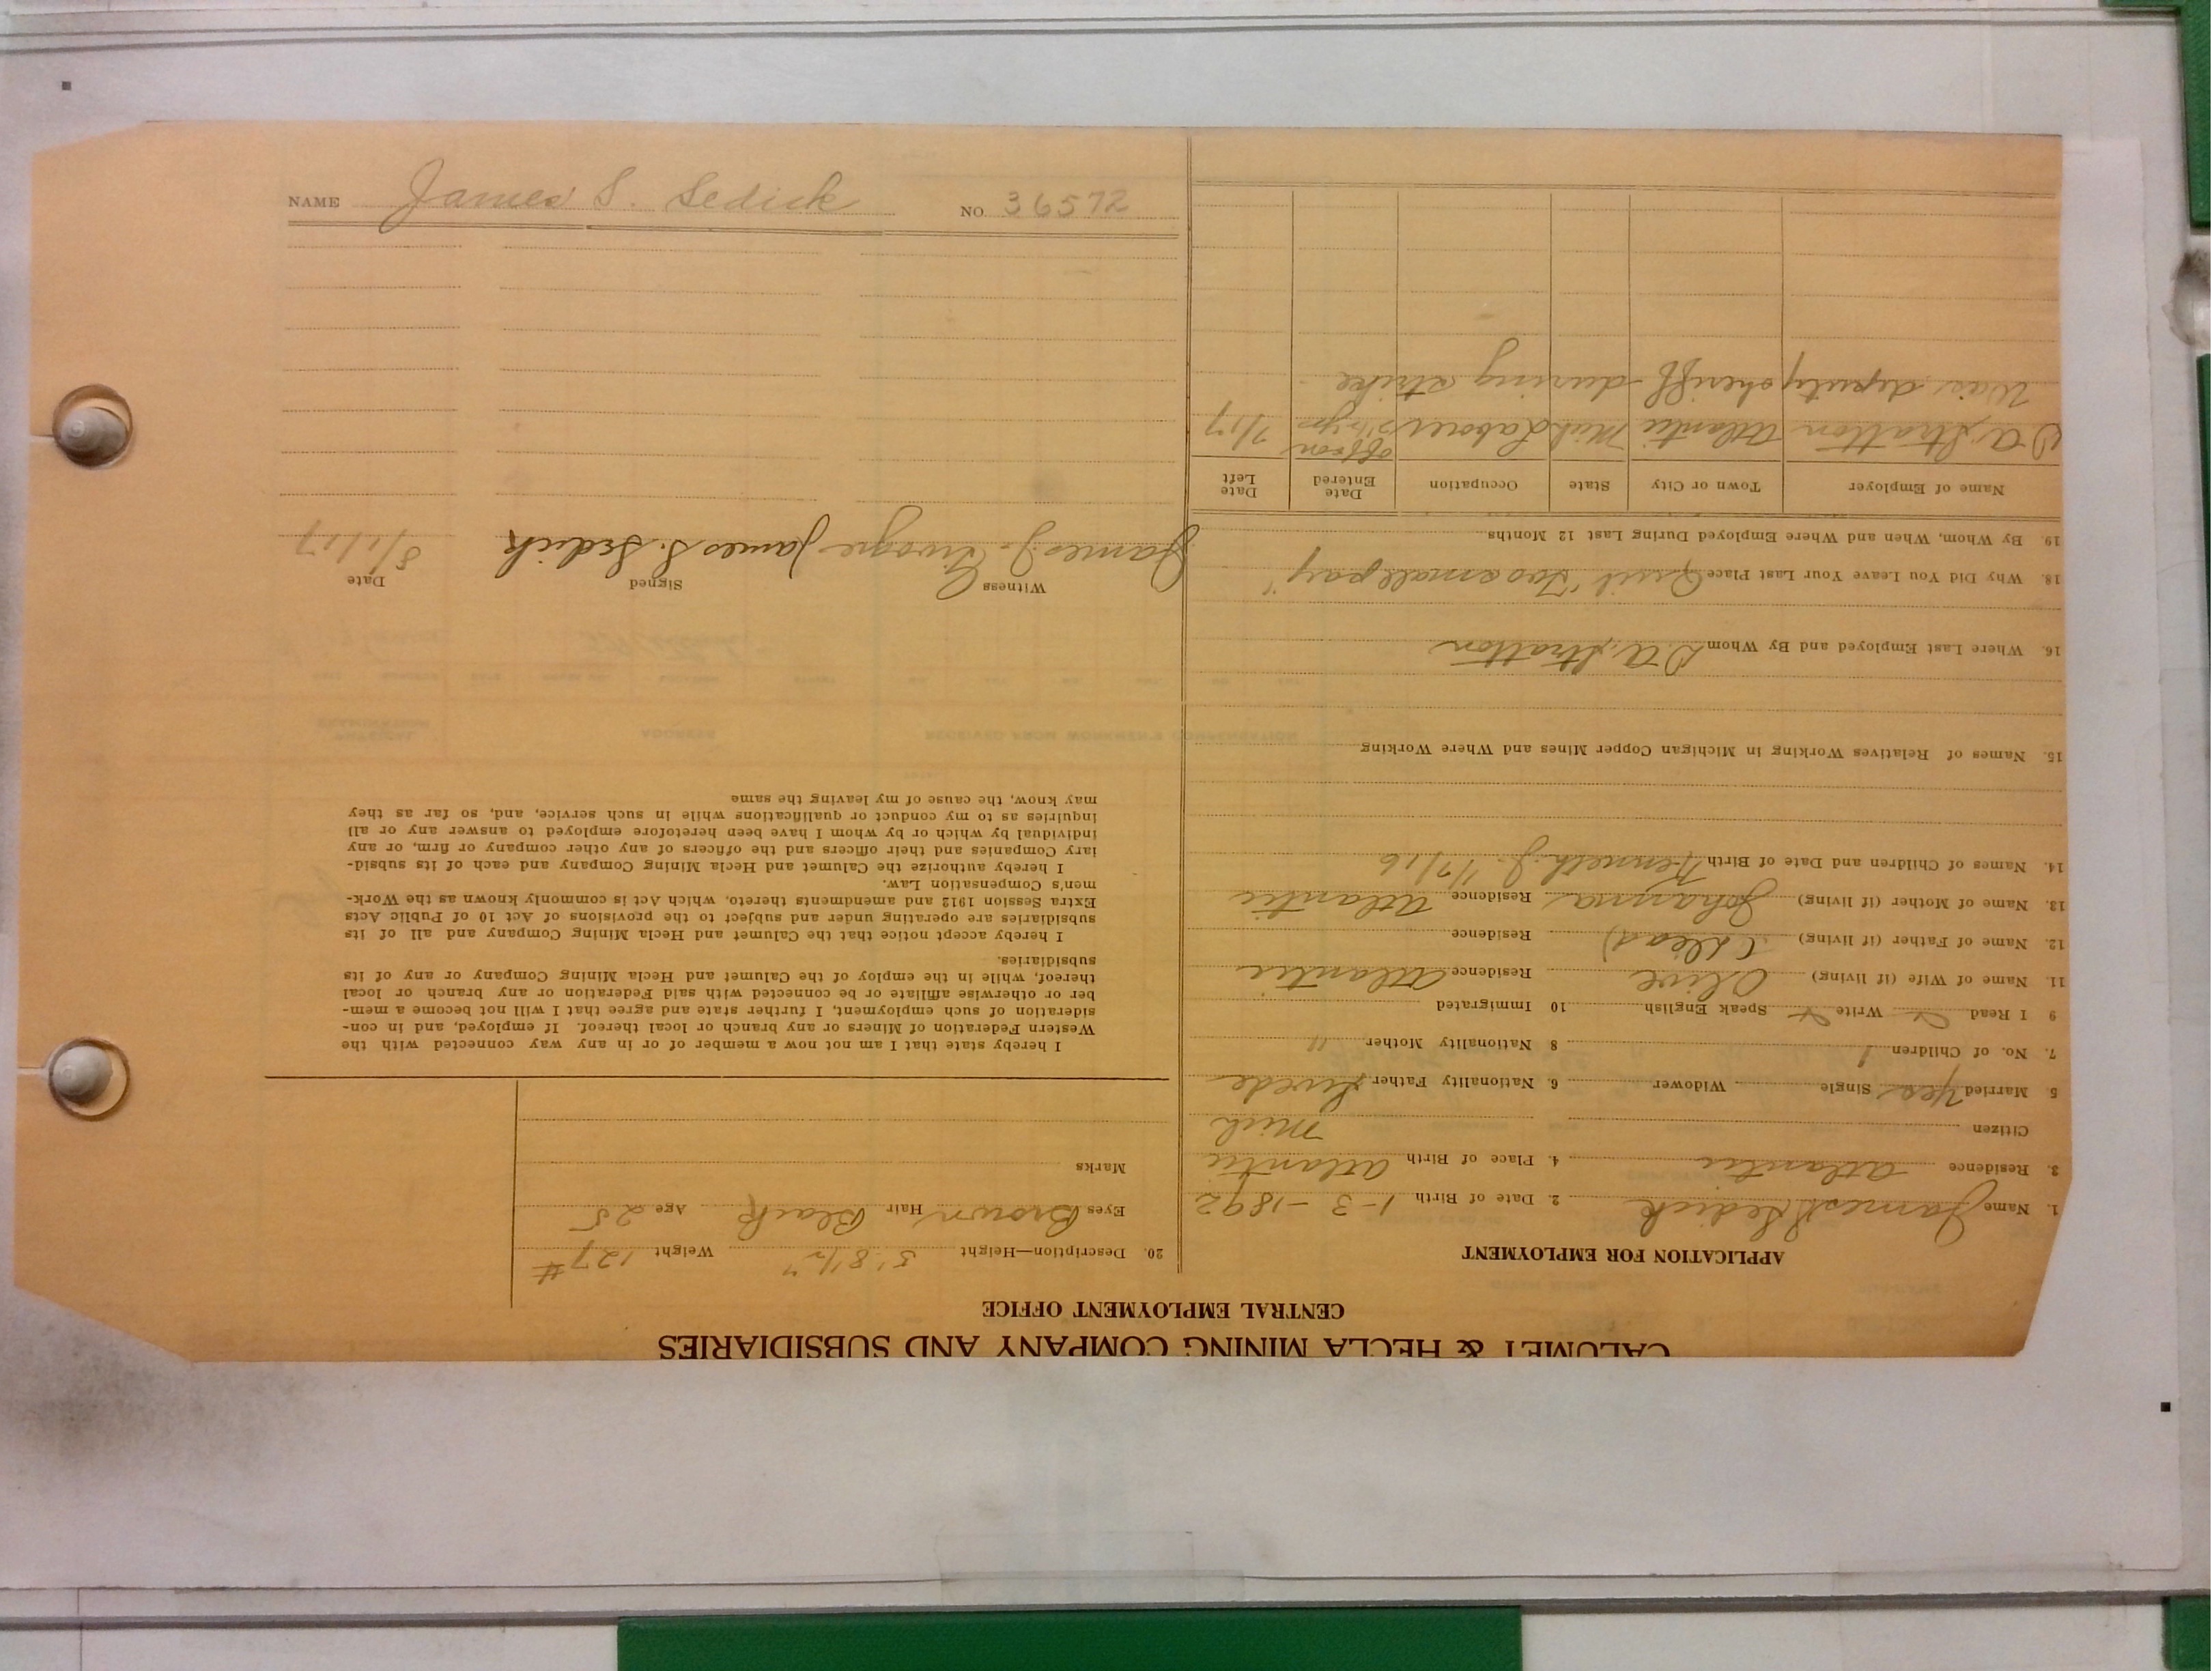 CALUMET & HECLA MINING COMPANY AND SUBSIDIARIES
CENTRAL EMPLOYMENT OFFICE
APPLICATION FOR EMPLOYMENT
1. Name James S Sedick 2. Date of Birth 1-3-1892
3. Residence Atlantic 4. Place of Birth Atlantic
Citizen Mich
5 Married Yes Single Widower 6. Nationality Father Swede
7. No. of Children 1 8 Nationality Mother "
9 I Read Write Speak English 10 Immigrated
11. Name of Wife (if living) Olive Residence Atlantic
12. Name of Father (if living) (Dead) Residence
13. Name of Mother (if living) Johanna Residence Atlantic
14. Names of Children and Date of Birth Kenneth J. 1/7/16
15. Names of Relatives Working in Michigan Copper Mines and Where Working
16. Where Last Employed and By Whom D.A. Stratton
18. Why Did You Leave Your Last Place Quit "Too small pay"
19. By Whom, When and Where Employed During Last 12 Months.
Name of Employer Town or City State Occupation Date Entered Date Left
D A, Stratton Atlantic Mich Laborer off & on yrs 7/17
Was deputy sheriff during strike
20. Description—Height 5' 8 1/2" Weight 127#
Eyes Brown Hair Black Age 25
Marks
I hereby state that I am not now a member of or in any way connected with the
Western Federation of Miners or any branch or local thereof. If employed, and in con-
sideration of such employment, I further state and agree that I will not become a mem-
ber or otherwise affiliate or be connected with said Federation or any branch or local
thereof, while in the employ of the Calumet and Hecla Mining Company or any of its
subsidiaries.
I hereby accept notice that the Calumet and Hecla Mining Company and all of its
subsidiaries are operating under and subject to the provisions of Act 10 of Public Acts
Extra Session 1912 and amendments thereto, which Act is commonly known as the Work-
men's Compensation Law.
I hereby authorize the Calumet and Hecla Mining Company and each of its subsid-
iary Companies and their officers and the officers of any other company or firm, or any
individual by which or by whom I have been heretofore employed to answer any or all
inquiries as to my conduct or qualifications while in such service, and, so far as they
may know, the cause of my leaving the same
Witness Signed Date
James J. James S. Sedick 8/1/17
NAME James S. Sedick NO 36572